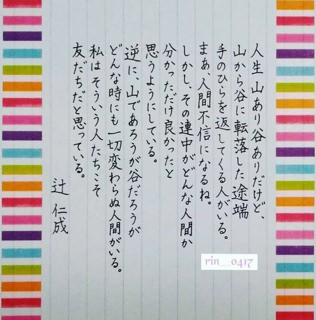 人生山あり谷ありだけど、
山から谷に転落した途端
手のひらを返してくる人がいる。
まぁ、人間不信になるね。
しかし、その連中がどんな人間か
分かっただけ良かったと
思うようにしている。
逆に、山であろうが谷だろうが
どんな時にも一切変わらぬ人間がいる。
私はそういう人たちこそ
友だちだと思っている。
辻 仁成
rin__0417